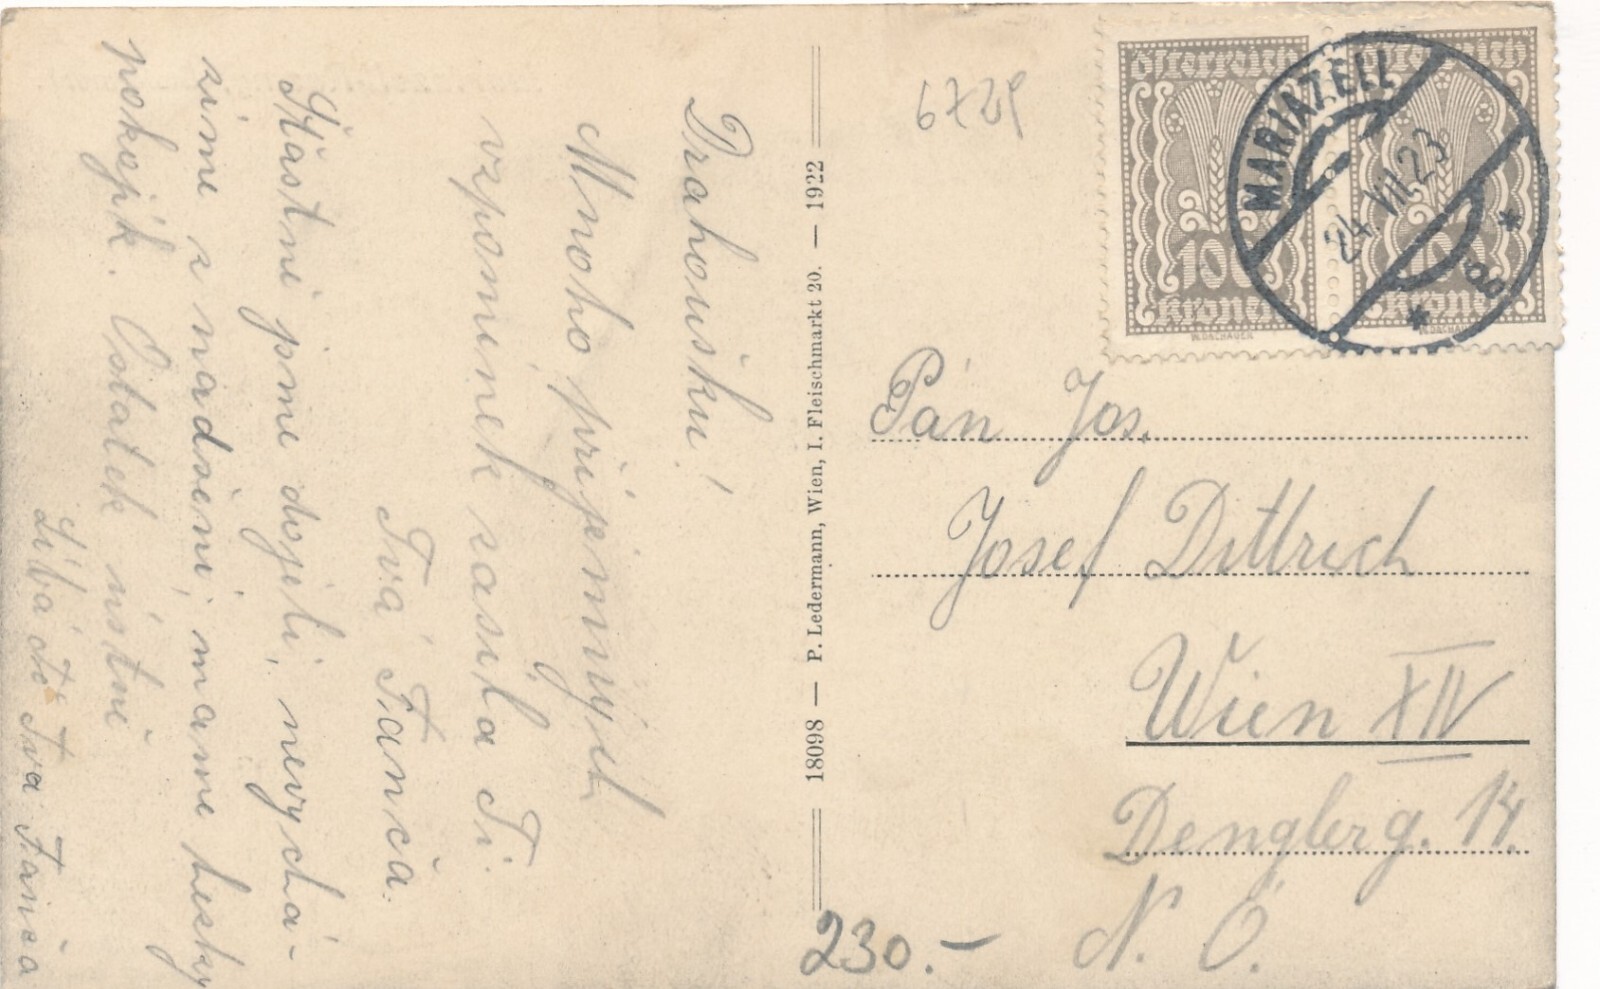 Drahoušku!
Mnoho příjemných
vzpomínek zasílá Ti
Tvá Fančа.
Šťastni jsme dojeli, nevychá-
zíme z nadšení, máme hezky
pokojík. Ostatek ústně
Líbá Tě Tvá Fanča
18098 — P. Ledermann, Wien, I. Fleischmarkt 20. — 1922
6729
Österreich
100
Kronen
W. DACHAUER
Österreich
100
Kronen
W. DACHAUER
MARIAZELL
24. VII. 23
* B *
Pán Jos.
Josef Dittrich
Wien XIV
Denglerg. 14.
N. Ö.
230.-